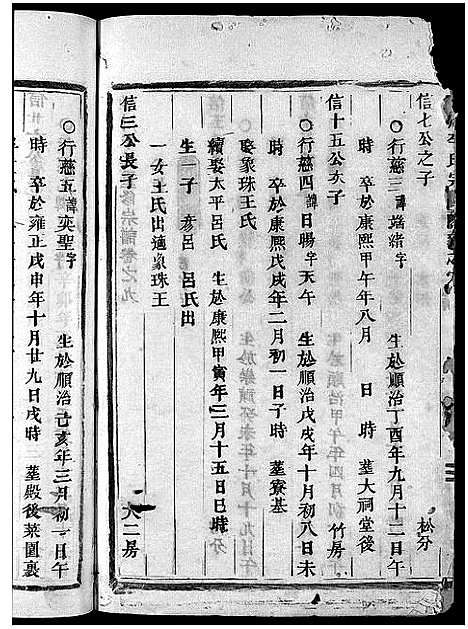 信七公之子 松分
○行慈三 諱 端緒 字 生於順治丁酉年九月十二日午
時 卒於康熙甲午年八月 日 時 塟大祠堂後
信十五公次子 竹房
○行慈四 諱 日暘 字 天午 生於順治戊戌年十月初八日未
時 卒於康熙戊戌年二月初一日子時 塟寮基
娶象珠王氏
續娶太平呂氏 生於康熙甲寅年三月十五日巳時 分
生一子 彦呂 呂氏出
一女王氏出適象珠王
信三公長子 大二房
○行慈五 諱 奕聖 字 生於順治己亥年三月初一日午
時 卒於雍正戊申年十月廿九日戌時 塟殿後菜園裏